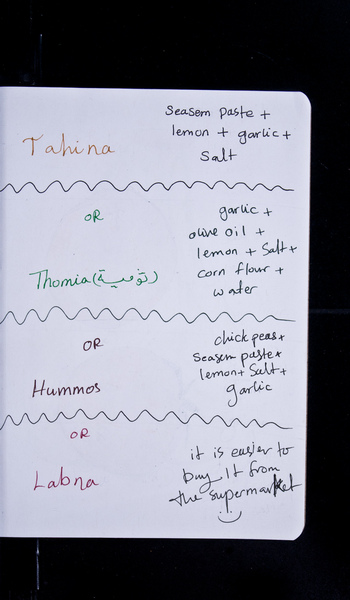 Seasem paste +
lemon + garlic +
Salt
Tahina
OR
garlic +
olive oil +
lemon + Salt +
corn flour +
water
Thomia (تومية)
OR
chick peas +
Seasem paste +
lemon + Salt +
garlic
Hummos
OR
it is easier to
buy it from
the supermarket
Labna